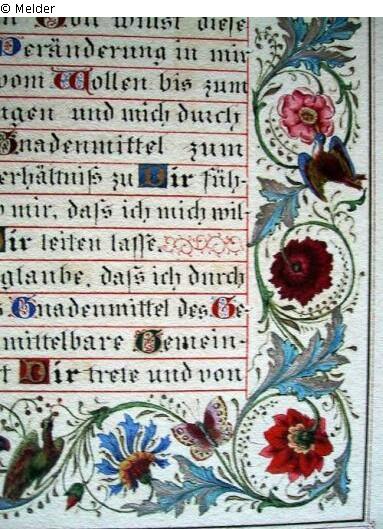 © Melder
Von willst diese
Veränderung in mir
vom Wollen bis zum
ngen und mich durch
Gnadenmittel zum
erhältniß zu Dir füh-
mir, daſs ich mich wil-
Dir leiten laſſe.
glaube, daſs ich durch
Gnadenmittel des Ge-
mittelbare Gemein-
t Dir trete und von